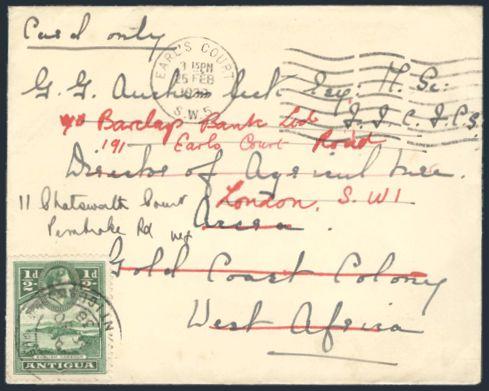 Card only
EARL'S COURT
3 15PM
25 FEB
S.W.5
G. G. Auchinleck Esq. M. Sc.
c/o Barclays Bank Ltd F. I. C., I. C. S.
191 Earls Court Road
Director of Agriculture
11 Chatsworth Court London. S. W1
Accra
Pembroke Rd W8
Gold Coast Colony
West Africa
½d ½d
ENGLISH HARBOUR
ANTIGUA